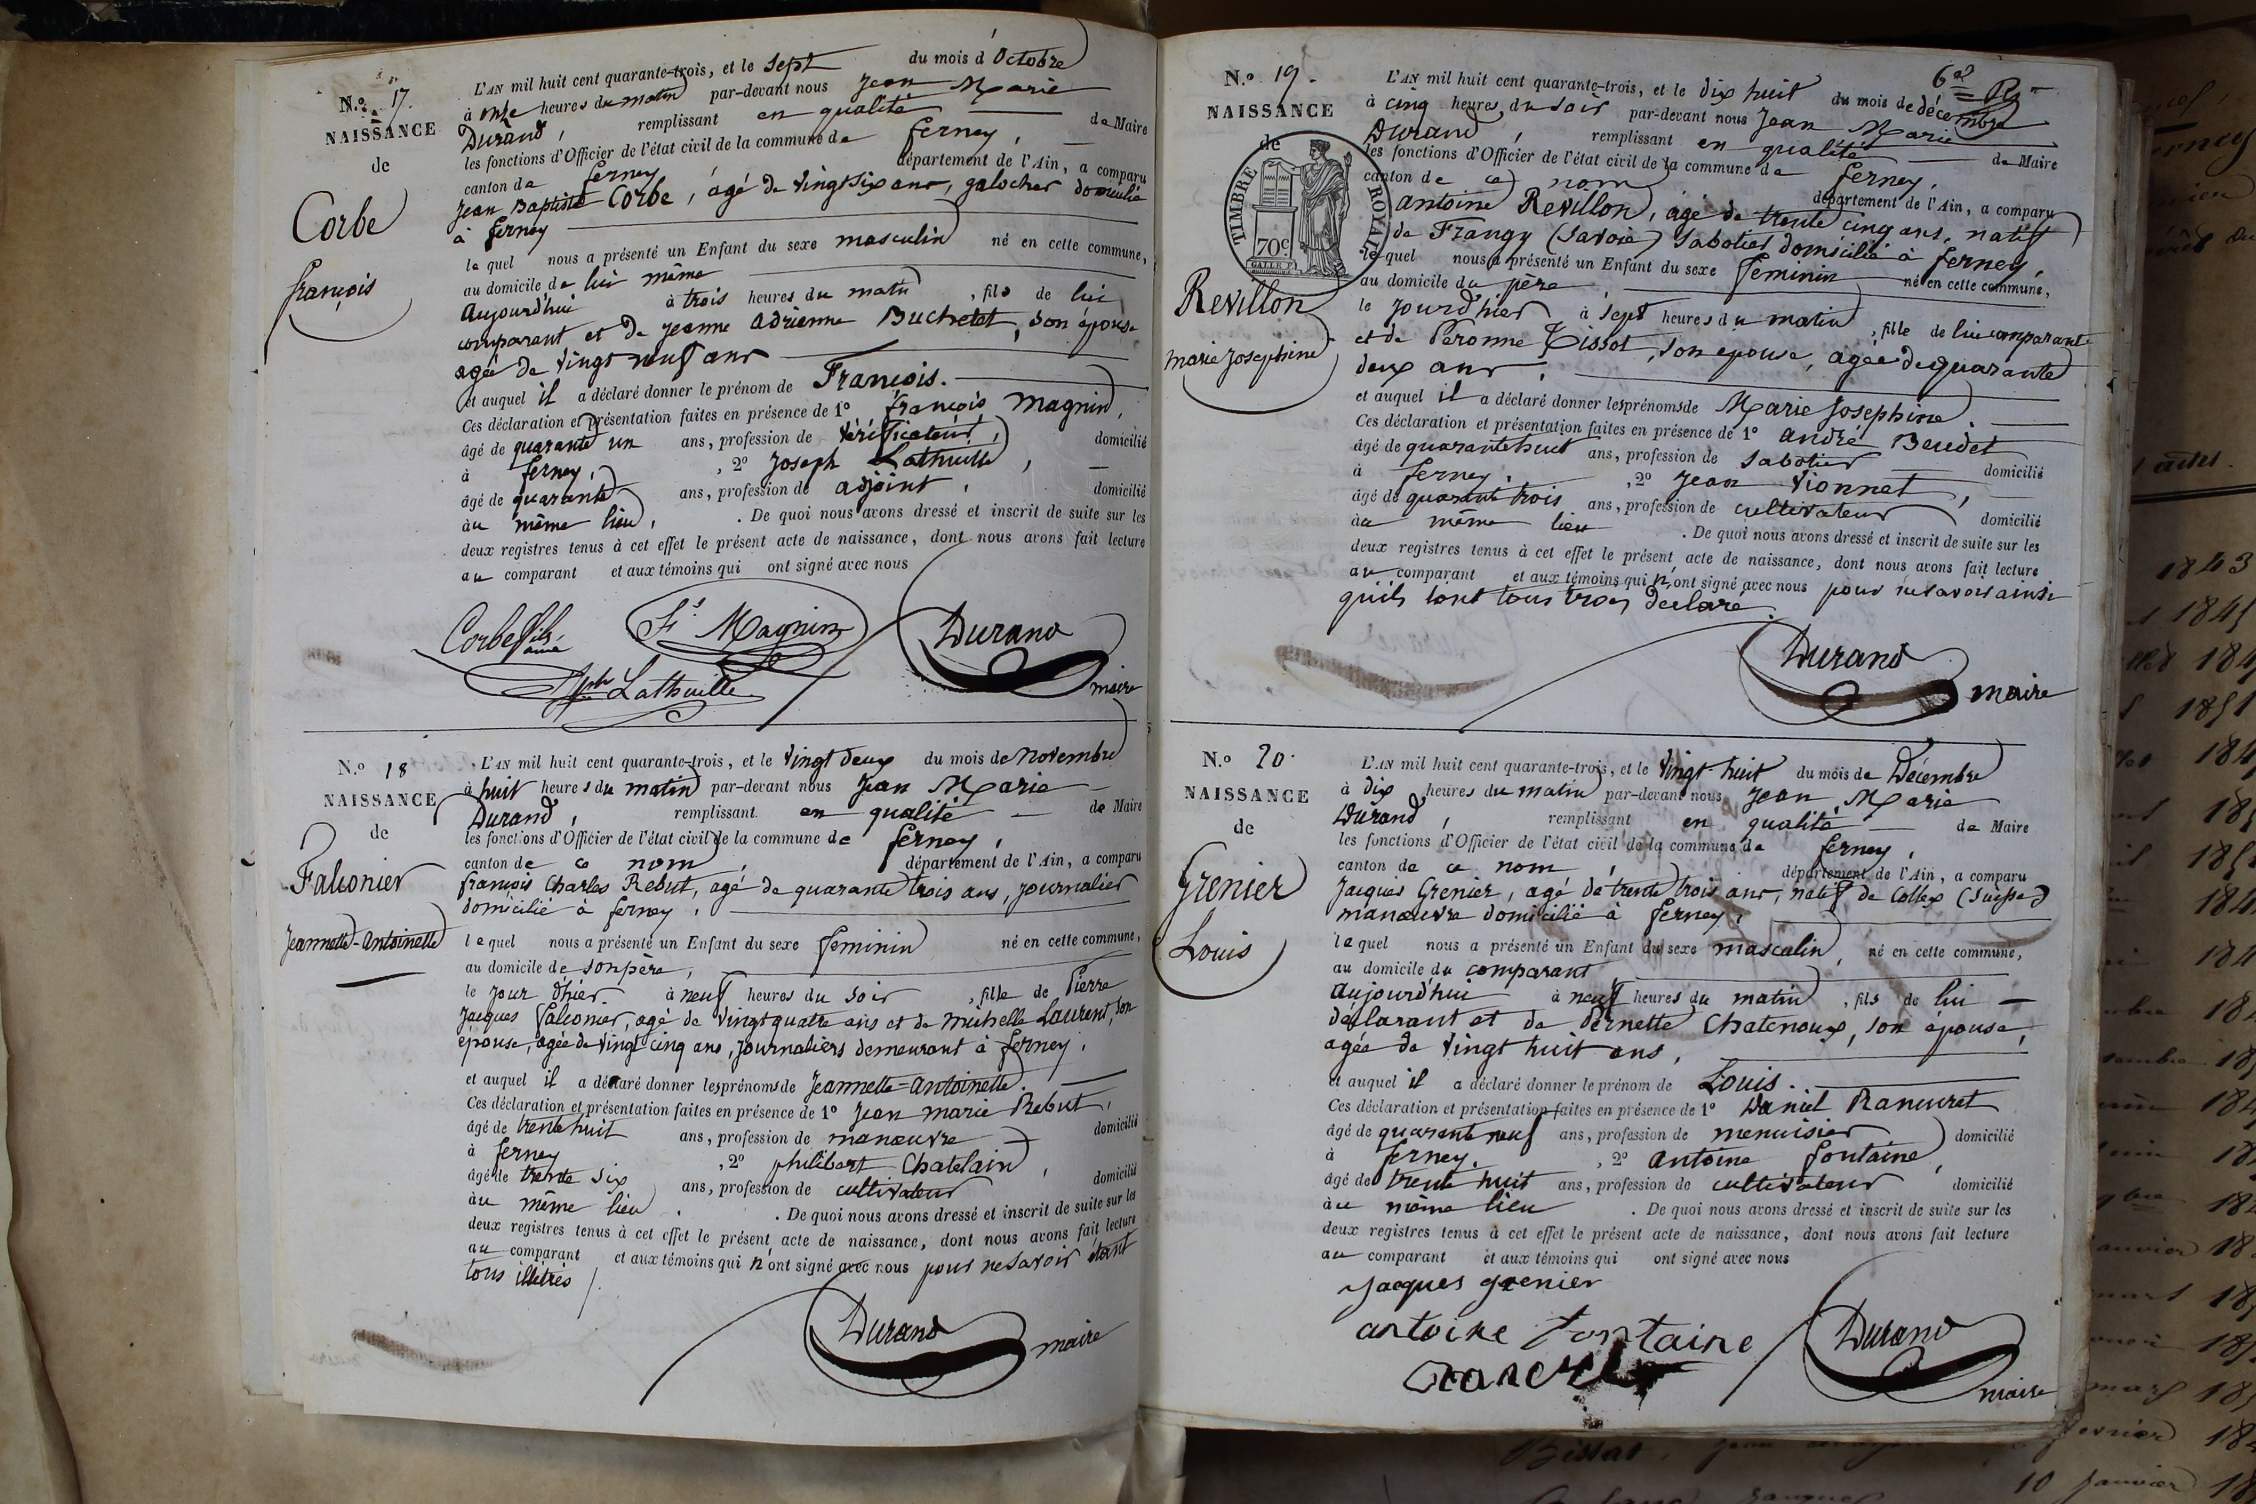 N.o 17.
NAISSANCE
de
Corbe
françois
L'AN mil huit cent quarante-trois, et le sept du mois d'Octobre
à onze heures du matin par-devant nous Jean Marie
Durand, remplissant en qualité de Maire
les fonctions d'Officier de l'état civil de la commune de ferney,
canton de ferney département de l'Ain, a comparu
Jean Baptiste Corbe, âgé de vingt six ans, galocher domicilié
à ferney
lequel nous a présenté un Enfant du sexe masculin né en cette commune,
au domicile de lui même
aujourd'hui à trois heures du matin, fils de lui
comparant et de Jeanne adrienne Buchetet, son épouse
agée de vingt neuf ans
et auquel il a déclaré donner le prénom de François.
Ces déclaration et présentation faites en présence de 1o françois magnin,
âgé de quarante un ans, profession de vérificateur, domicilié
à ferney, , 2o Joseph Lathuille,
âgé de quarante ans, profession de adjoint, domicilié
au même lieu, . De quoi nous avons dressé et inscrit de suite sur les
deux registres tenus à cet effet le présent acte de naissance, dont nous avons fait lecture
au comparant et aux témoins qui ont signé avec nous
Corbe fils ainé
Fs Magnin
Durand
maire
Jph Lathuille
N.o 18
NAISSANCE
de
Falconier
Jeannette-Antoinette
L'AN mil huit cent quarante-trois, et le vingt deux du mois de novembre
à huit heures du matin par-devant nous Jean Marie
Durand, remplissant en qualité de Maire
les fonctions d'Officier de l'état civil de la commune de ferney,
canton de ce nom, département de l'Ain, a comparu
françois Charles Rebut, agé de quarante trois ans, journalier
domicilié à ferney,
lequel nous a présenté un Enfant du sexe feminin né en cette commune,
au domicile de son père,
le jour d'hier à neuf heures du soir, fille de Pierre
Jacques falconier, agé de vingt quatre ans et de michelle Laurent, son
épouse, agée de vingt cinq ans, journaliers demeurant à ferney,
et auquel il a déclaré donner les prénoms de Jeannette=antoinette.
Ces déclaration et présentation faites en présence de 1o Jean marie Rebut,
âgé de trente huit ans, profession de manœuvre domicilié
à ferney , 2o philibert Chatelain,
âgé de trente six ans, profession de cultivateur domicilié
au même lieu . De quoi nous avons dressé et inscrit de suite sur les
deux registres tenus à cet effet le présent acte de naissance, dont nous avons fait lecture
au comparant et aux témoins qui n'ont signé avec nous pour ne savoir étant
tous illétrés
Durand
maire
6e
N.o 19.
NAISSANCE
de
TIMBRE ROYAL
70c
Revillon
marie Josephine
L'AN mil huit cent quarante-trois, et le dix huit du mois de décembre
à cinq heures du soir par-devant nous Jean Marie
Durand, remplissant en qualité de Maire
les fonctions d'Officier de l'état civil de la commune de ferney,
canton de ce nom département de l'Ain, a comparu
antoine Revillon, agé de trente cinq ans, natif
de Frangy (Savoie) sabotier domicilié à ferney,
lequel nous a présenté un Enfant du sexe feminin né en cette commune,
au domicile du père
le jour d'hier à sept heures du matin, fille de lui comparant
et de Péronne Tissot, son épouse, agée de quarante
deux ans,
et auquel il a déclaré donner les prénoms de Marie Josephine.
Ces déclaration et présentation faites en présence de 1o andré Beudet
âgé de quarante huit ans, profession de sabotier domicilié
à ferney. , 2o Jean Vionnet,
âgé de quarante trois ans, profession de cultivateur domicilié
au même lieu . De quoi nous avons dressé et inscrit de suite sur les
deux registres tenus à cet effet le présent acte de naissance, dont nous avons fait lecture
au comparant et aux témoins qui n'ont signé avec nous pour ne savoir ainsi
qu'ils l'ont tous trois déclaré
Durand
maire
N.o 20.
NAISSANCE
de
Grenier
Louis
L'AN mil huit cent quarante-trois, et le vingt-huit du mois de Décembre
à dix heures du matin par-devant nous Jean Marie
Durand, remplissant en qualité de Maire
les fonctions d'Officier de l'état civil de la commune de ferney,
canton de ce nom, département de l'Ain, a comparu
Jacques Grenier, agé de trente trois ans, natif de Collex (Suisse)
manœuvre domicilié à ferney,
lequel nous a présenté un Enfant du sexe masculin, né en cette commune,
au domicile du comparant
aujourd'hui à neuf heures du matin, fils de lui
déclarant et de Pernette Chatenoux, son épouse,
agée de vingt huit ans,
et auquel il a déclaré donner le prénom de Louis.
Ces déclaration et présentation faites en présence de 1o Daniel Raneuret
âgé de quarante neuf ans, profession de menuisier domicilié
à ferney. , 2o antoine fontaine,
âgé de trente huit ans, profession de cultivateur domicilié
au même lieu . De quoi nous avons dressé et inscrit de suite sur les
deux registres tenus à cet effet le présent acte de naissance, dont nous avons fait lecture
au comparant et aux témoins qui ont signé avec nous
Jacques grenier
antoine fontaine
Durand
maire
1843
10 janvier